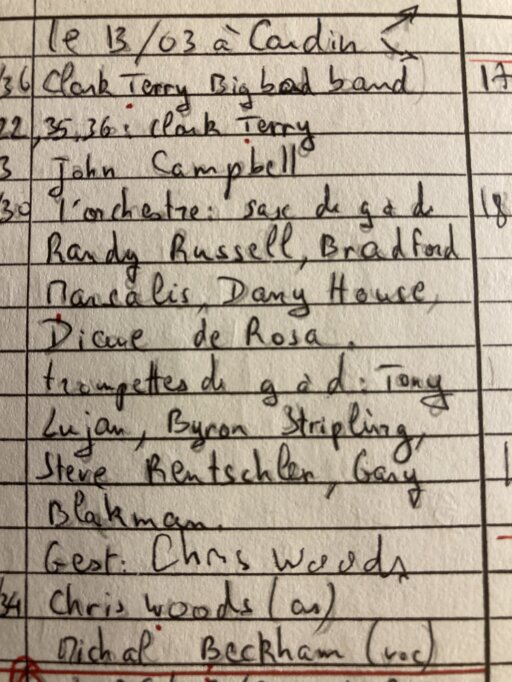 le 13/03 à Cardin
36 Clark Terry Big bad band 17
22,35,36: Clark Terry
3 John Campbell
30 l'orchestre: sax de g à d 18
Randy Russell, Bradford
Marsalis, Dany House,
Diane de Rosa.
trompettes de g à d: Tony
Lujan, Byron Stripling,
Steve Rentschler, Gary
Blakman.
Gest: Chris Woods
34 Chris Woods (as)
Michal Beckham (voc)